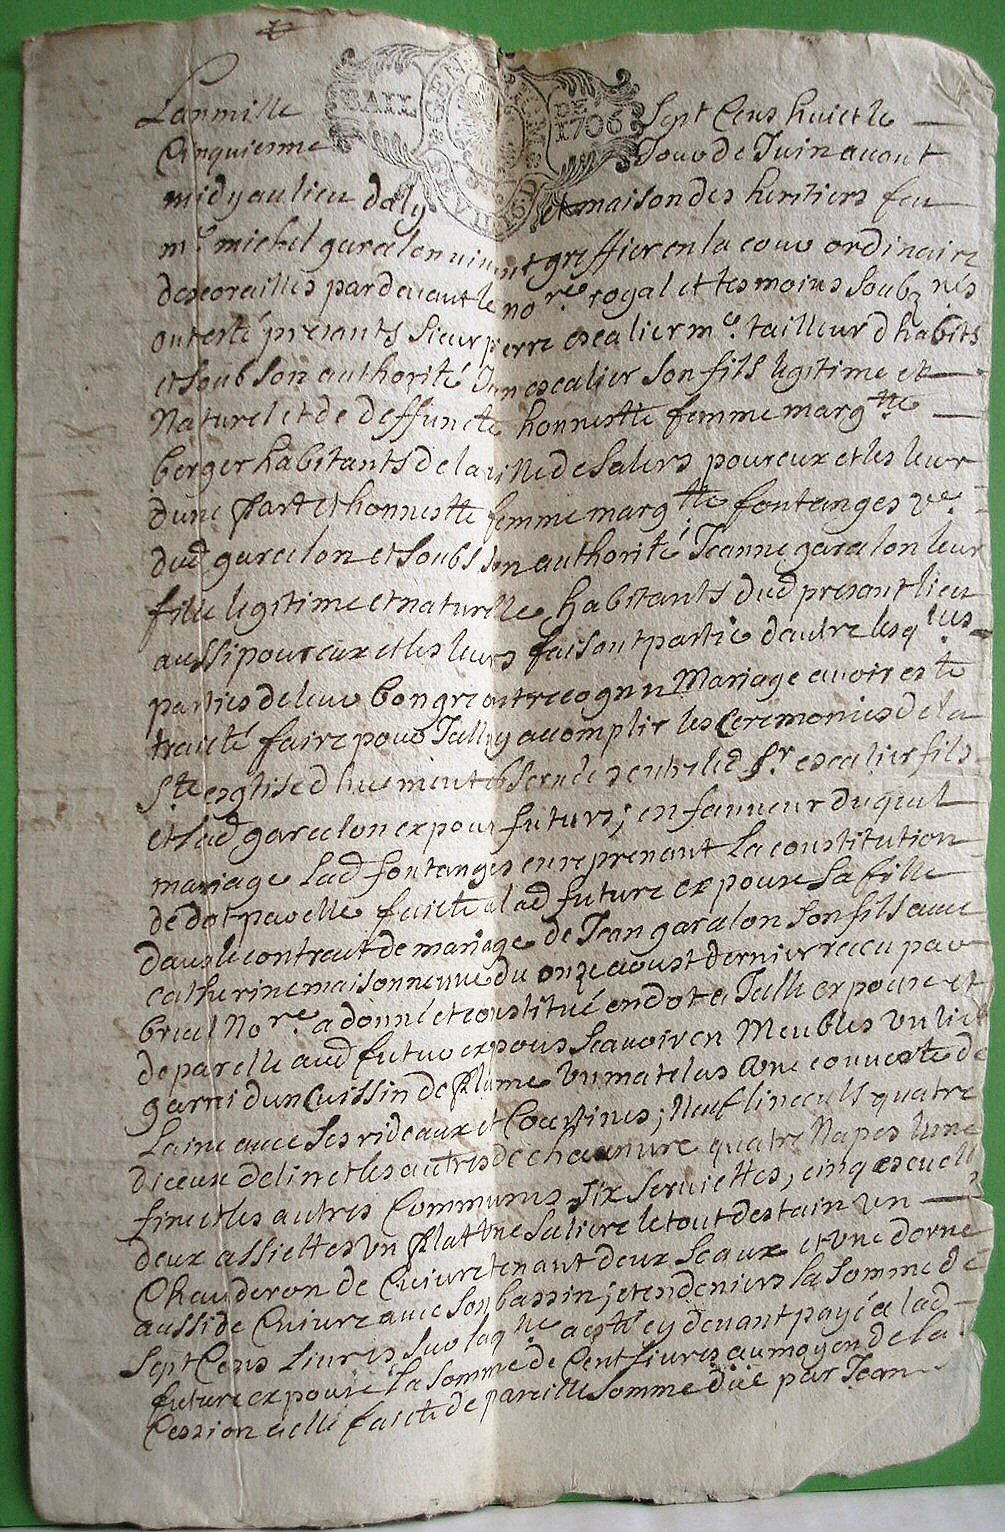 BAIL DE
GEN 1706
SEVIII 16 D
Lan mille Sept Cens huict le
Cinquiesme Jour de Juin avant
midy au lieu daly et maison des heritiers feu
me. michel garcelon vivant greffier en la cour ordinaire
descorailles par devant le nore. royal et tesmoins Soubz nes
ont esté presants Sieur pierre escalier me. tailleur d habits
et soubs son authorité Jean escalier son fils legitime et
Naturel et de deffuncte honneste femme margtte
berger habitants de la ville de Salers pour eux et les leur
dune part et honneste femme margtte fontanges ve.
dud garcelon et soubs son authorité Jeanne garcelon leur
fille legitime et naturelle habitants dud presant lieu
aussi pour eux et les leurs faisont partie dautre lesqlles
parties de leur bon gre ont recognu Mariage avoir este
traicté faire pour Jalluy acomplir les Ceremonies de la
Ste esglise dhuement observées entre led Sr. escalier fils
et lad garcelon expour futurs; en faveur duquel
mariage lad fontanges en reprenant La constitution
de dot par elle faicte a lad future expouse Sa fille
dans le contract de mariage de Jean garcelon son fils avec
catherine maisonneuve du onze aoust dernier receu par
brial Nore. a donné et constitué en dot a Jalle expouse et
de par elle aud futur expous Scavoir en Meubles un lict
garni dun Cuissin de Plume un matelas une couverte de
Laine avec Ses rideaux et Courtines; Neuf linceuls quatre
diceux de lin et les autres de chanvre quatre Napes lune
fine et les autres Communes Six Serviettes, cinq escuelle
deux assiettes un Plat une Saliere le tout destain un
Chauderon de Cuivre tenant deux Seaux et une dorne
aussi de Cuivre avec Son bassin; et en deniers la Somme de
Sept Cens Livres Sur laqlle a esté cy devant payé a lad
future expouse La Somme de Cent Livres au moyen de la
Cession a elle faicte de pareille Somme düe par Jean